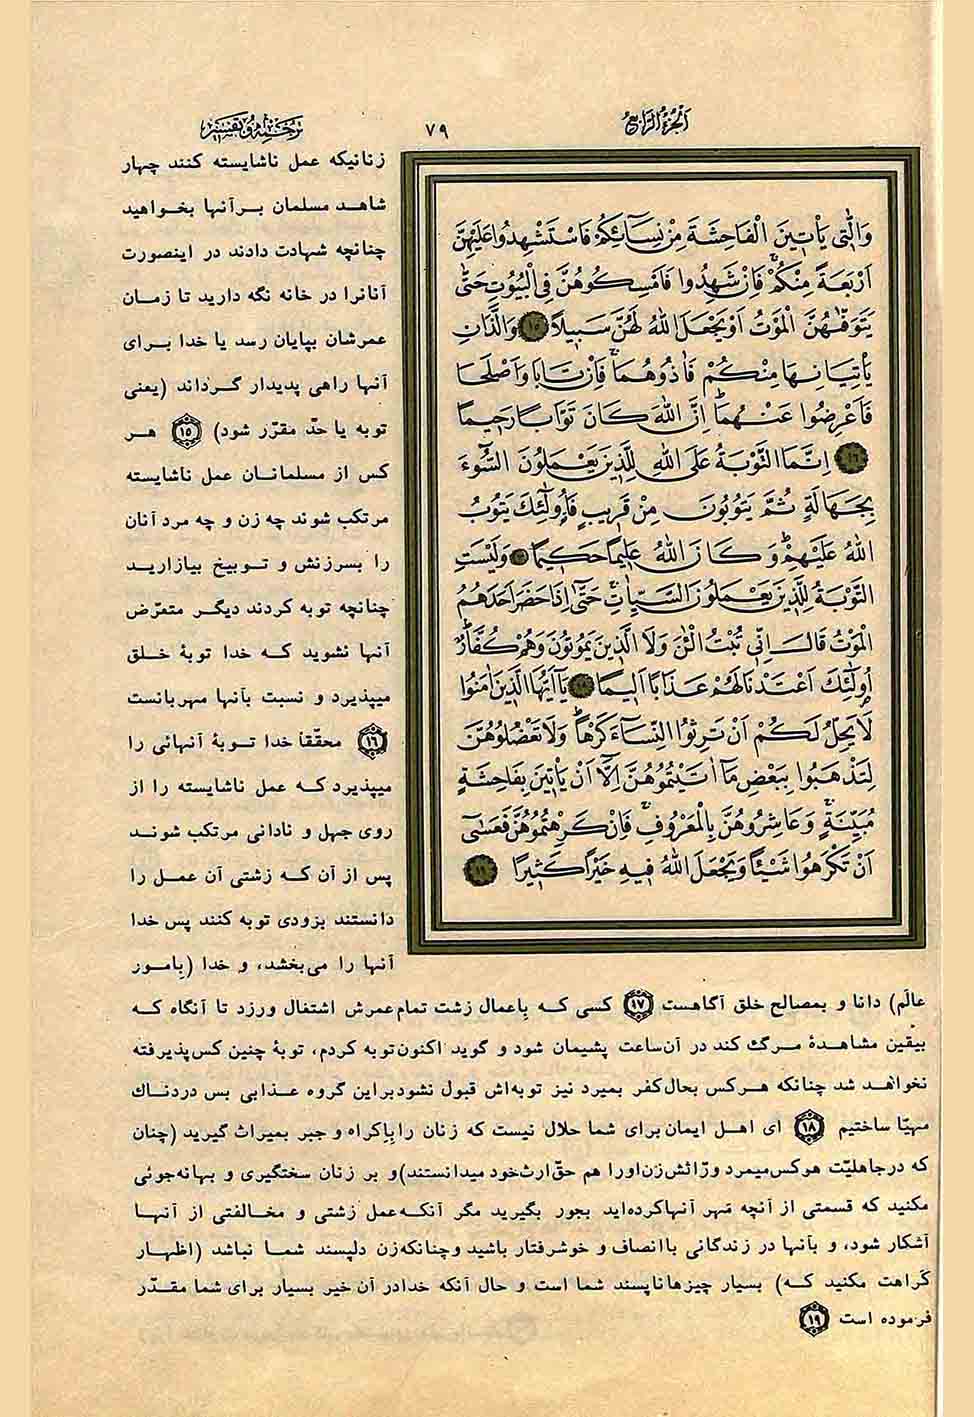 اَلْجُزْءُ الرّابِعُ
٧٩
ترجمه و تفسیر
وَالّٰتى يَأْتينَ الْفَاحِشَةَ مِنْ نِسَآئِكُمْ فَاسْتَشْهِدُوا عَلَيْهِنَّ
اَرْبَعَةً مِنْكُمْ فَاِنْ شَهِدُوا فَاَمْسِكُوهُنَّ فِى الْبُيُوتِ حَتّٰى
يَتَوَفّٰيهُنَّ الْمَوْتُ اَوْ يَجْعَلَ اللّٰهُ لَهُنَّ سَبيلاً ١٥ وَالَّذَانِ
يَأْتِيَانِهَا مِنْكُمْ فَاٰذُوهُمَا فَاِنْ تَابَا وَاَصْلَحَا
فَاَعْرِضُوا عَنْهُمَا اِنَّ اللّٰهَ كَانَ تَوَّابًا رَحيمًا
١٦ اِنَّمَا التَّوْبَةُ عَلَى اللّٰهِ لِلَّذينَ يَعْمَلُونَ السُّوٓءَ
بِجَهَالَةٍ ثُمَّ يَتُوبُونَ مِنْ قَريبٍ فَاُولٰٓئِكَ يَتُوبُ
اللّٰهُ عَلَيْهِمْ وَ كَانَ اللّٰهُ عَليمًا حَكيمًا ١٧ وَلَيْسَتِ
التَّوْبَةُ لِلَّذينَ يَعْمَلُونَ السَّيِّاٰتِ حَتّٰٓى اِذَا حَضَرَ اَحَدَهُمُ
الْمَوْتُ قَالَ اِنّى تُبْتُ الْـٰٔنَ وَلَا الَّذينَ يَمُوتُونَ وَهُمْ كُفَّارٌ
اُولٰٓئِكَ اَعْتَدْنَا لَهُمْ عَذَابًا اَليمًا ١٨ يَآ اَيُّهَا الَّذينَ اٰمَنُوا
لَا يَحِلُّ لَكُمْ اَنْ تَرِثُوا النِّسَآءَ كَرْهًا وَلَا تَعْضُلُوهُنَّ
لِتَذْهَبُوا بِبَعْضِ مَآ اٰتَيْتُمُوهُنَّ اِلَّآ اَنْ يَأْتينَ بِفَاحِشَةٍ
مُبَيِّنَةٍ وَعَاشِرُوهُنَّ بِالْمَعْرُوفِ فَاِنْ كَرِهْتُمُوهُنَّ فَعَسٰٓى
اَنْ تَكْرَهُوا شَيْـًٔا وَيَجْعَلَ اللّٰهُ فيهِ خَيْرًا كَثيرًا ١٩
زنانیکه عمل ناشایسته کنند چهار
شاهد مسلمان برآنها بخواهید
چنانچه شهادت دادند در اینصورت
آنانرا در خانه نگه دارید تا زمان
عمرشان بپایان رسد یا خدا برای
آنها راهی پدیدار گرداند (یعنی
توبه یا حدّ مقرّر شود) ١٥ هر
کس از مسلمانان عمل ناشایسته
مرتکب شوند چه زن و چه مرد آنان
را بسرزنش و توبیخ بیازارید
چنانچه توبه کردند دیگر متعرّض
آنها نشوید که خدا توبهٔ خلق
میپذیرد و نسبت بآنها مهربانست
١٦ محقّقاً خدا توبهٔ آنهائی را
میپذیرد که عمل ناشایسته را از
روی جهل و نادانی مرتکب شوند
پس از آن که زشتی آن عمل را
دانستند بزودی توبه کنند پس خدا
آنها را می‌بخشد، و خدا (بامور
عالَم) دانا و بمصالح خلق آگاهست ١٧ کسی که باعمال زشت تمام عمرش اشتغال ورزد تا آنگاه که
بیقین مشاهدهٔ مرگ کند در آن‌ساعت پشیمان شود و گوید اکنون توبه کردم، توبهٔ چنین کس پذیرفته
نخواهد شد چنانکه هرکس بحال کفر بمیرد نیز توبه‌اش قبول نشود براین گروه عذابی بس دردناك
مهیّا ساختیم ١٨ ای اهل ایمان برای شما حلال نیست که زنان را باکراه و جبر بمیراث گیرید (چنان
که درجاهلیّت هرکس میمرد ورّاثش زن اورا هم حقّ ارث خود میدانستند) و بر زنان سختگیری و بهانه‌جوئی
مکنید که قسمتی از آنچه مَهر آنها کرده‌اید بجور بگیرید مگر آنکه عمل زشتی و مخالفتی از آنها
آشکار شود، و بآنها در زندگانی باانصاف و خوشرفتار باشید وچنانکه زن دلپسند شما نباشد (اظهار
کَراهت مکنید که) بسیار چیزها ناپسند شما است و حال آنکه خدا در آن خیر بسیار برای شما مقدّر
فرموده است ١٩